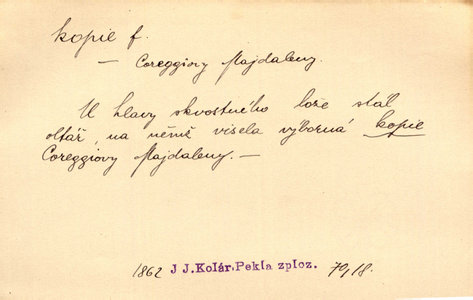 kopie f.
— Coreggiovy Majdaleny.
U hlavy skvostného lože stál
oltář, na němž visela výborná kopie
Coreggiovy Majdaleny. —
1862 J J. Kolár. Pekla zploz. 70,18.